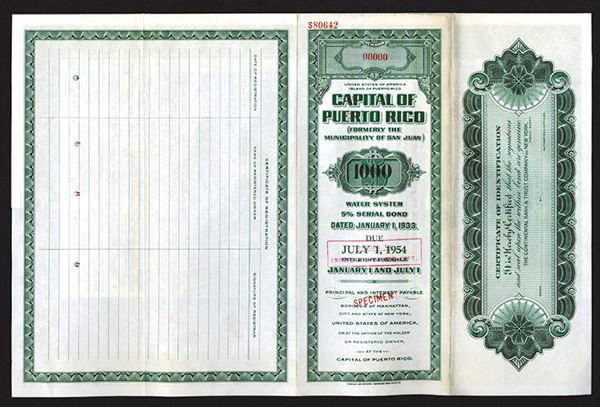 S80642
00000
UNITED STATES OF AMERICA
ISLAND OF PUERTO RICO
CAPITAL OF
PUERTO RICO
(FORMERLY THE
MUNICIPALITY OF SAN JUAN)
1000
WATER SYSTEM
5% SERIAL BOND
DATED JANUARY 1, 1933
DUE
JULY 1, 1954
INTEREST PAYABLE
JANUARY 1 AND JULY 1
PRINCIPAL AND INTEREST PAYABLE
SPECIMEN
BOROUGH OF MANHATTAN,
CITY AND STATE OF NEW YORK,
UNITED STATES OF AMERICA,
OR AT THE OPTION OF THE HOLDER
OR REGISTERED OWNER,
AT THE
CAPITAL OF PUERTO RICO.
CERTIFICATE OF REGISTRATION
DATE OF REGISTRATION
NAME OF REGISTERED OWNER
SIGNATURE OF REGISTRAR
CERTIFICATE OF IDENTIFICATION
It is Hereby Certified that the signatures
and seal upon the within bond are genuine
THE CONTINENTAL BANK & TRUST COMPANY OF NEW YORK,